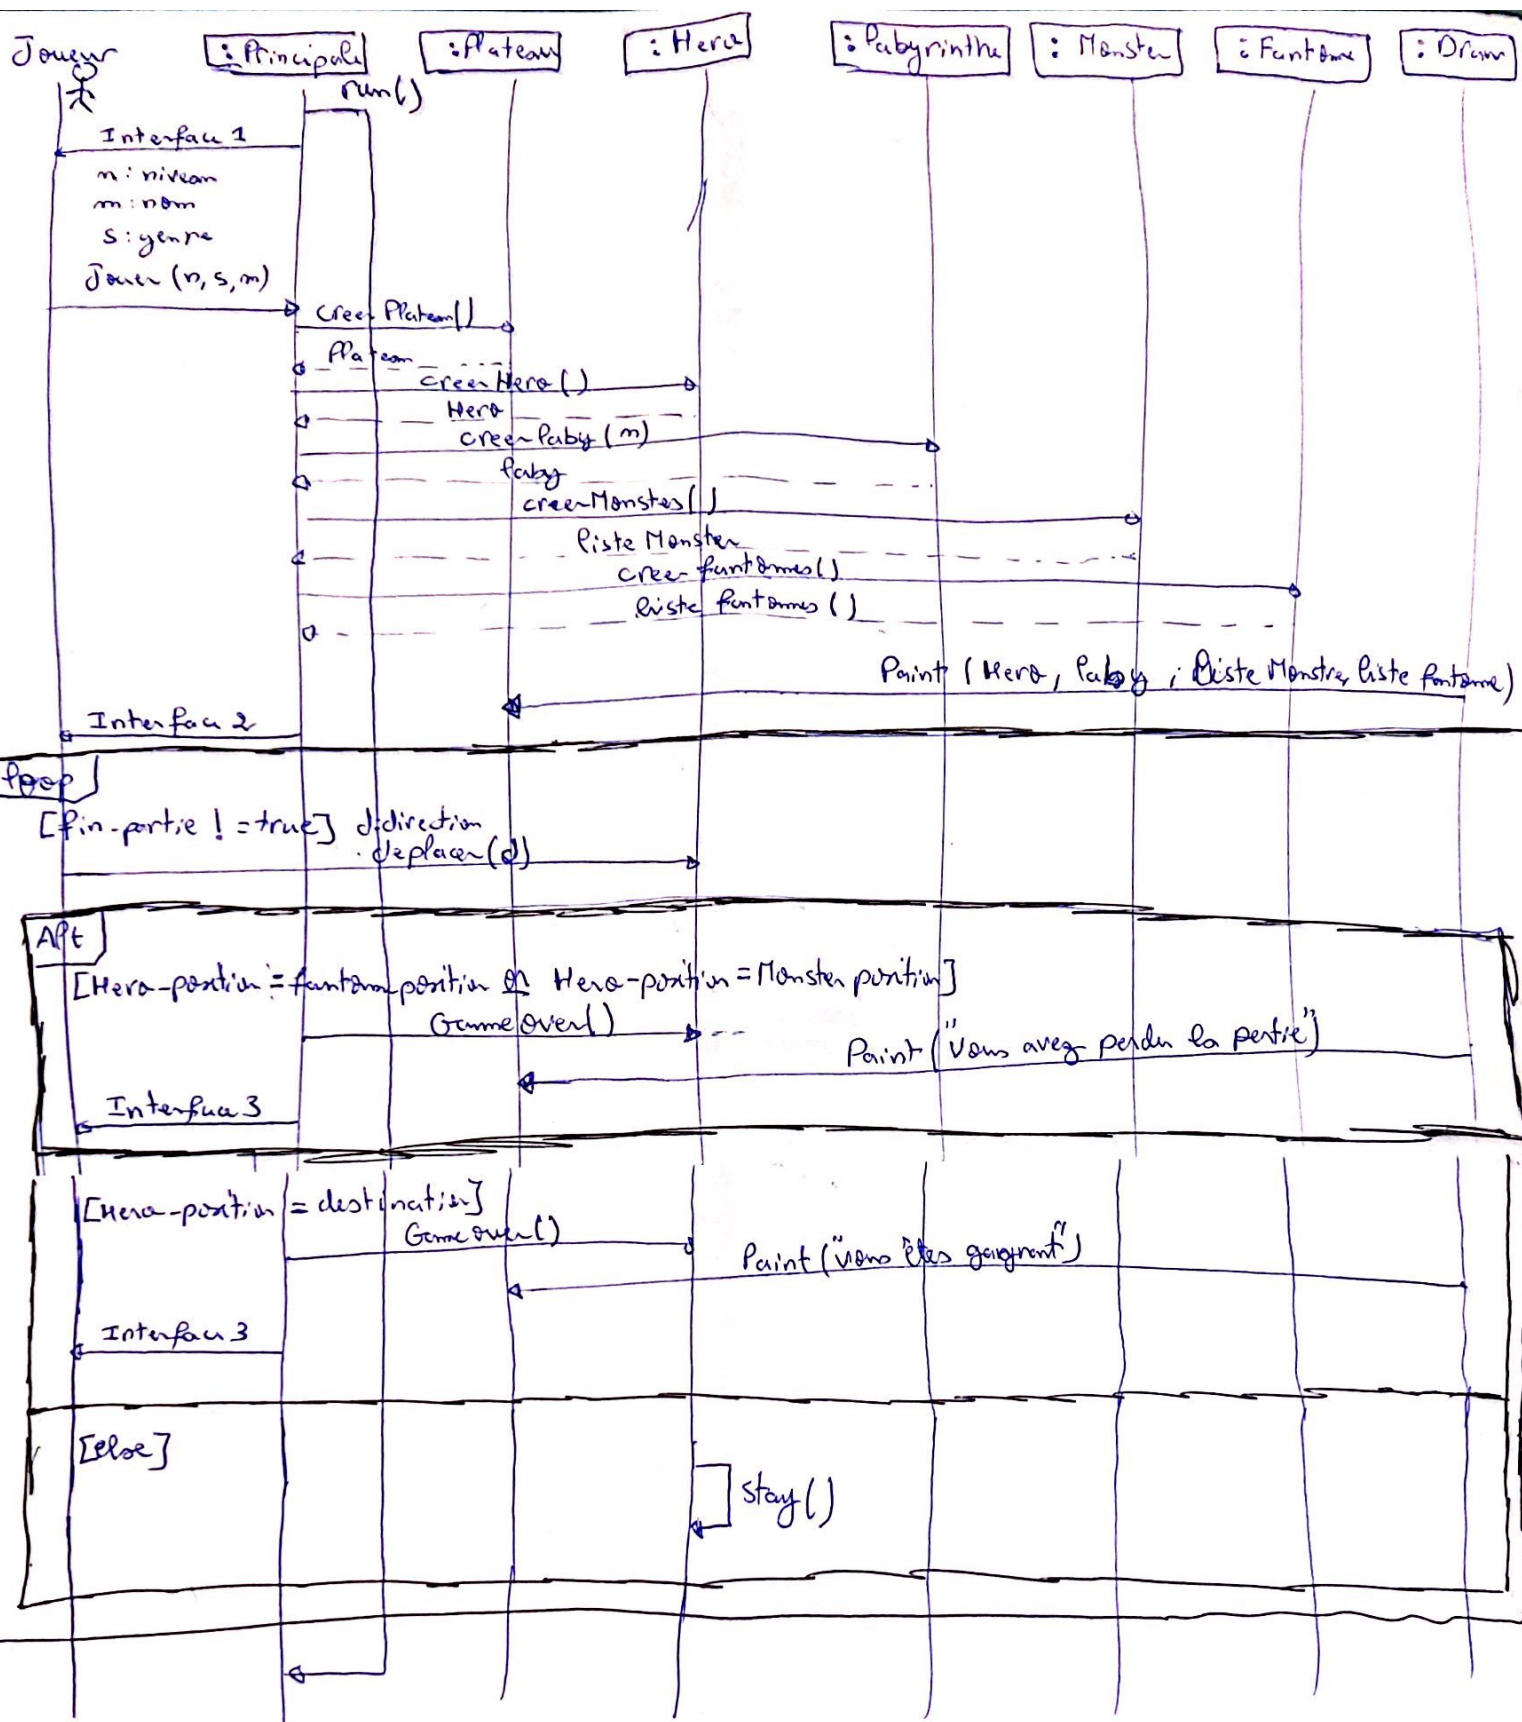 Joueur
:Principale
:Plateau
:Hero
:Labyrinthe
:Monster
:Fantome
:Draw
run()
Interface 1
n: niveau
m: nom
s: genre
Jouer (n, s, m)
creer Plateau()
Plateau
creer Hero()
Hero
creer Laby (n)
Laby
creer Monstes()
liste Monster
creer fantomes()
liste fantomes ()
Paint (Hero, Laby, Liste Monstre, liste fantome)
Interface 2
loop
[fin-partie != true] d:direction
deplacer(d)
Alt
[Hero-position = fantome position or Hero-position = Monster position]
Game over()
Paint ("Vous avez perdu la partie")
Interface 3
[Hero-position = destination]
Game over()
Paint ("vous êtes gagnant")
Interface 3
[else]
stay()